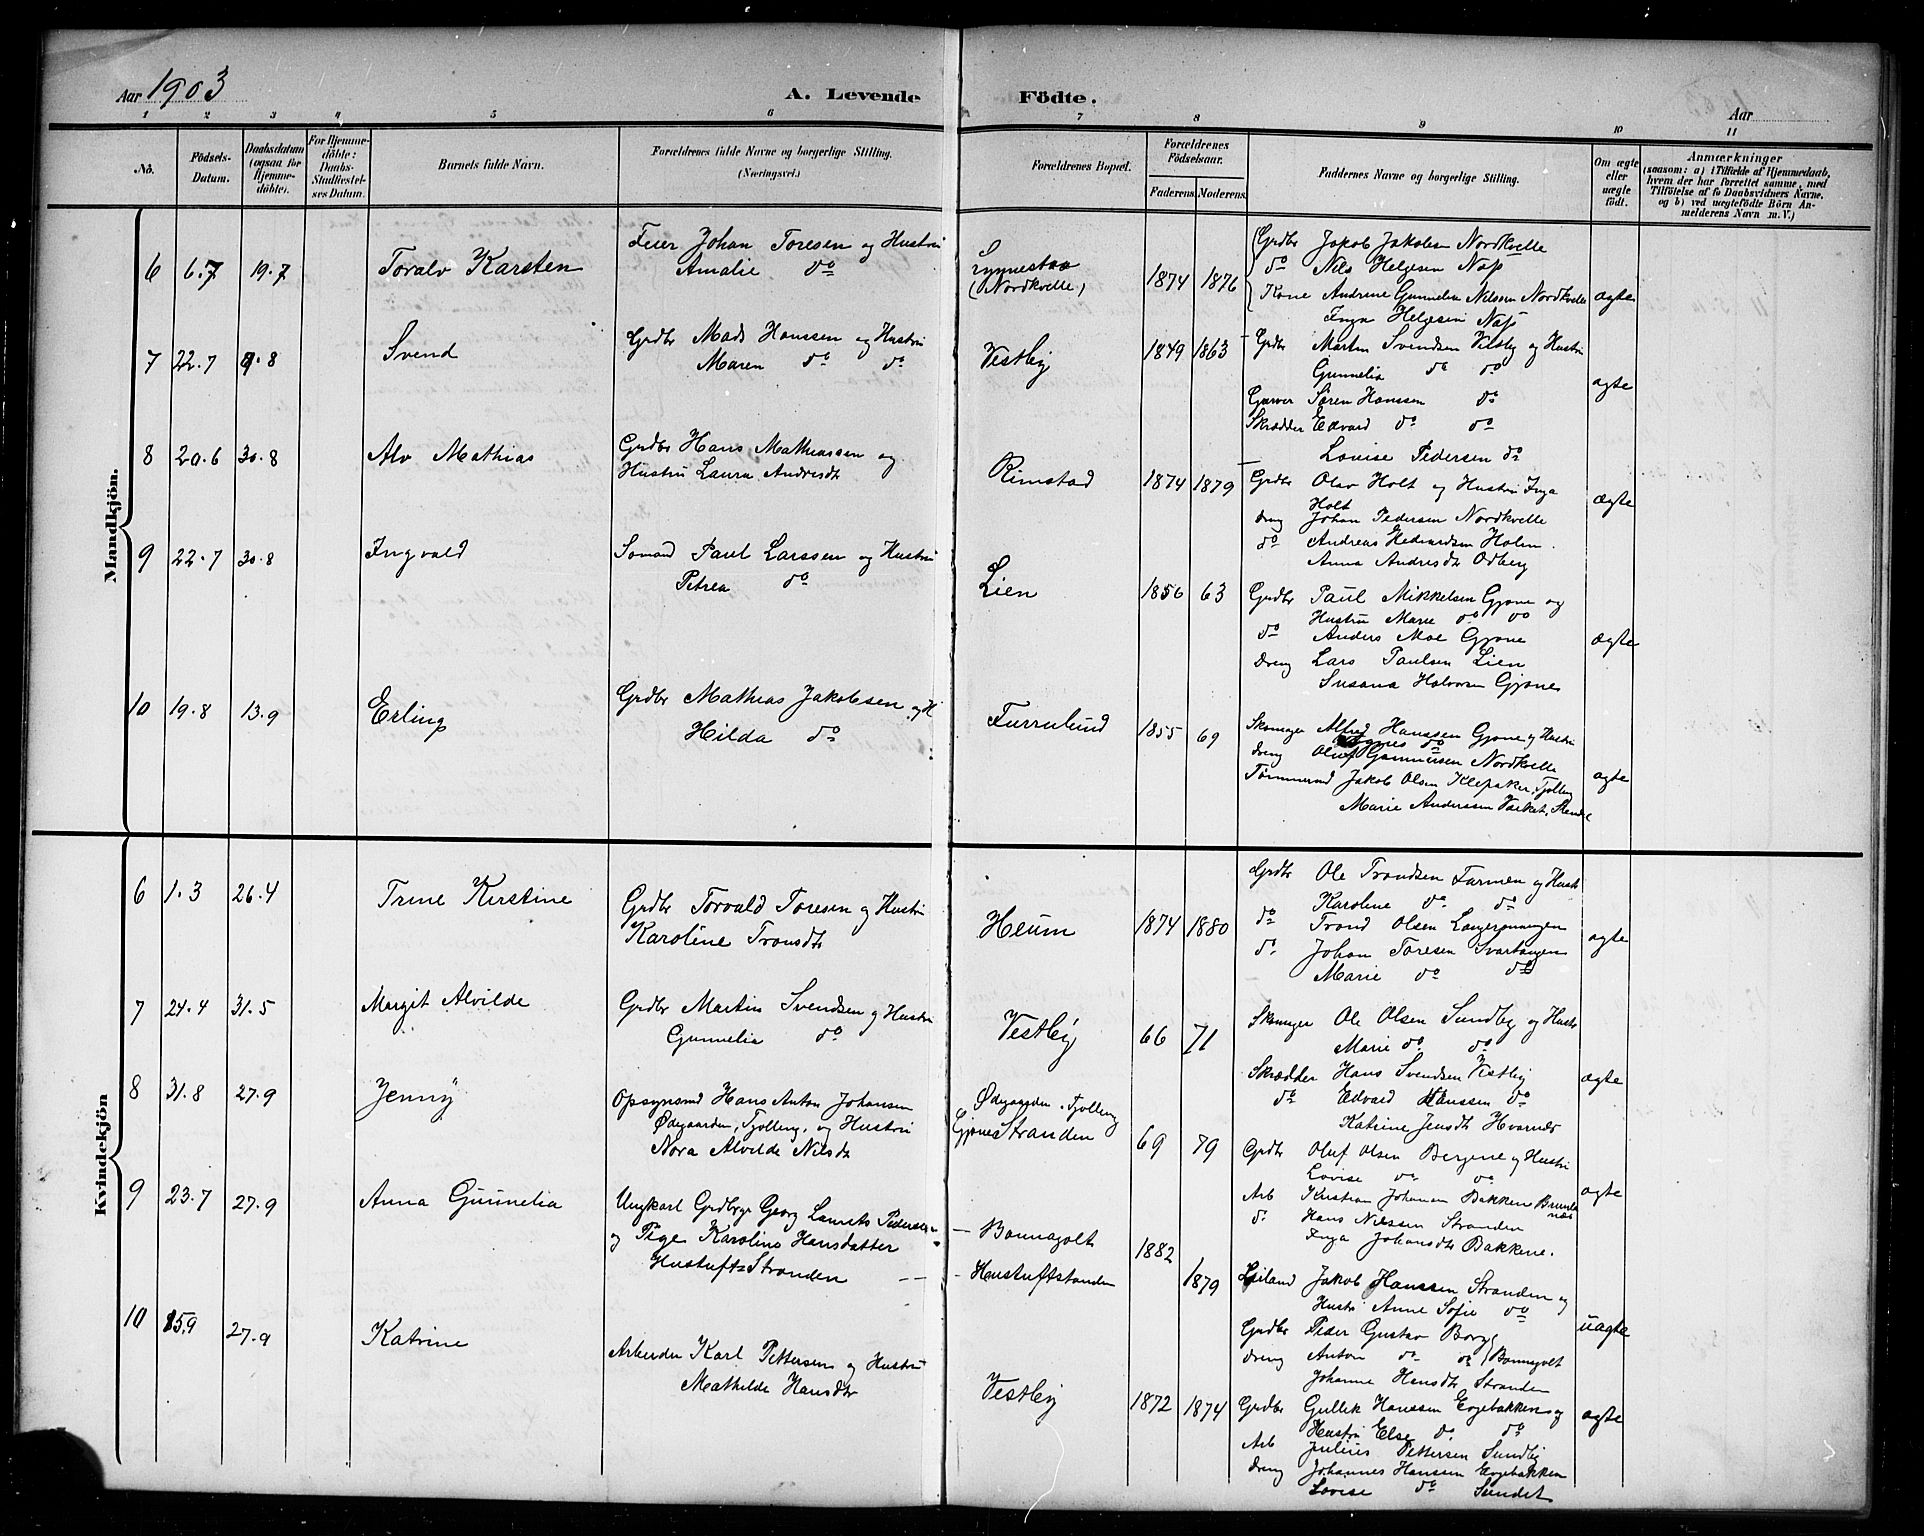 Aar 1903
A. Levende Födte.
Aar
1 2 3 4 5 6 7 8 9 10 11
No.
Födsels-
Datum.
Daabsdatum
(ogsaa for
Hjemme-
döbte).
For Hjemme-
döbte:
Daabs-
Stadfæstel-
ses Datum.
Barnets fulde Navn.
Forældrenes fulde Navne og borgerlige Stilling.
(Næringsvei.)
Forældrenes Bopæl.
Forældrenes
Födselsaar.
Faderens. Moderens.
Faddernes Navne og borgerlige Stilling.
Om ægte
eller
uægte
födt.
Anmærkninger
(saasom: a) i Tilfælde af Hjemmedaab,
hvem der har forrettet samme, med
Tilföielse af to Daabsvidners Navne,
og b) ved uægtefödte Börn An-
melderens Navn m. V.)
Mandkjön.
6 6.7 19.7 Toralv Karsten
Feier Johan Toresen og Hustru
Amalie do
(Nordkvelle)
1874 1876
Grdbr Jakob Jakobsen Nordkvelle
do Nils Helgesen Nap
Kone Andrine Gunnelia Nilssen Nordkvelle
Inga Helgesen Nap
ægte
7 22.7 9.8 Svend
Grdbr Mads Hanssen og Hustru
Maren do do
Vestby
1849 1863
Grdbr Martin Svendsen Vestby og Hustru
Gunnelia do do
Garver Sören Hanssen do
Skrædder Edvard do do
Lovise Pedersen do
ægte
8 20.6 30.8 Alv Mathias
Grdbr Hans Mathiassen og
Hustru Laura Andresdtr
Rimstad
1874 1879
Grdbr Olav Holt og Hustru Inga
Holt
dreng Johan Pedersen Nordkvelle
do Andreas Hedvardsen Holm.
Anna Andresdtr Odberg
ægte
9 22.7 30.8 Ingvald
Sömand Paul Larssen og Hustru
Petrea do
Lien
1856 63
Grdbr Paul Mikkelsen Gjone og
Hustru Marie do do
do Anders Moe Gjone
dreng Lars Paulsen Lien
Susana Halvorsen Gjone
ægte
10 19.8 13.9 Erling
Grdbr Mathias Jakobsen og H
Hilda do
Furrulund
1855 69
Skomager Alfred Hanssen Gjone og Hustru
Agnes do
dreng Oluf Gunnersen Nordkvelle
Tömmermd Jakob Olsen Klepaker, Tjölling
Marie Anderssen
ægte
Kvindekjön
6 1.3 26.4 Trine Kirstine
Grdbr Torvald Toresen og Hustru
Karoline Tronsdtr
Heum
1874 1880
Grdbr Ole Trondsen Farmen og Hustr
Karoline do do
do Trond Olsen Langerönningen
do Johan Toresen Svartangen
Marie do do
ægte
7 24.4 31.5 Margit Alvilde
Grdbr Martin Svendsen og Hustru
Gunnelia do
Vestby
66 71
Skomager Ole Olsen Sundby og Hustr
Marie do do
Skrædder Hans Svendsen Vestby
do Edvard Hanssen do
Katrine Jensdtr Hvarnes
ægte
8 31.8 27.9 Jenny
Opsynsmd Hans Anton Johansen
Ødegaarden, Tjölling, og Hustru
Nora Alvilde Nilsdtr
Ødegaarden, Tjölling
Gjone Stranden
69 79
Grdbr Oluf Olsen Bergene og Hustru
Lovise do do
Arb Kristian Johansen Bakken Brunla
næs
do Hans Nilssen Stranden
Inga Johansdtr Bakkene.
ægte
9 23.7 27.9 Anna Gunnelia
Ungkarl Grdbr Georg Laurits Pedersen
og Pige Karoline Hansdatter
Hustuft Stranden
Bonnagolt
Hustuftstranden
1882
1879
Leiland Jakob Hanssen Stranden og
Hustr Anne Sofie do
Grdbr Peder Gustav Borge
dreng Anton do do Bonnegolt
Johanne Hansdtr Stranden
uægte
10 15.9 27.9 Katrine
Arbeider Karl Pettersen og Hustru
Mathilde Hansdtr
Vestby
1872 1874
Grdbr Gullik Hanssen Evjebakken og
Hustru Else do do
Arb Julius Pettersen Sundby
dreng Johannes Hanssen Evjebakken
Lovise do Sundet
ægte